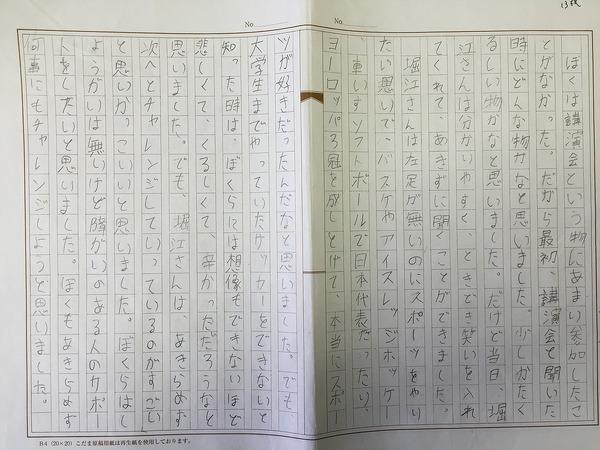 13枚
No.
No.
ぼくは講演会という物にあまり参加したこ
とがなかった。だから最初、講演会と聞いた
時にどんな物かなと思いました。少しかたく
るしい物かなと思いました。だけど当日、堀
江さんは分かりやすく、ときどき笑いを入れ
てくれて、あきずに聞くことができました。
堀江さんは左足が無いのにスポーツをやり
たい思いで、バスケやアイスレッジホッケー
、車いすソフトボールで日本代表だったり、
ヨーロッパ3冠を成しとげて、本当にスポー
ツが好きだったんだなと思いました。でも、
大学生までやっていたサッカーをできないと
知った時は、ぼくらには想像もできないほど
悲しくて、くるしくて、辛かっただろうなと
思いました。でも、堀江さんは、あきらめず
次へとチャレンジしていっているのがすごい
と思いかっこいいと思いました。ぼくらはし
ようがいは無いけど障がいのある人のサポー
トをしたいと思いました。ぼくもあきらめず
何事にもチャレンジしようと思いました。
B4（20×20）こだま原稿用紙は再生紙を使用しております。